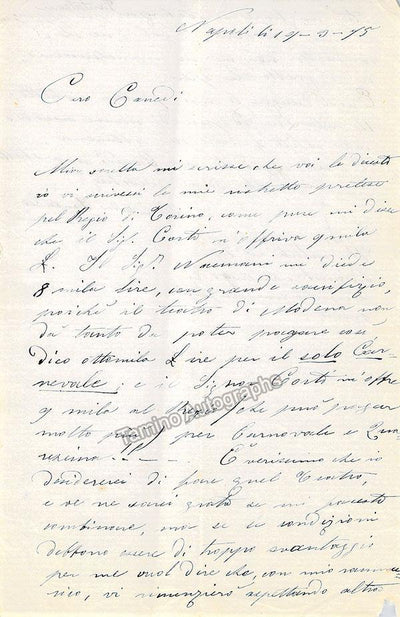 Napoli li 19-8-75
Caro Canedi
Mia sorella mi scrisse, che voi le diceste
io vi scrivessi le mie ristrette pretese
pel Regio di Torino, come pure mi dice
che il Sig. Corti m'offriva 9 mila
L. Il Sig.r Naumani mi diede
8 mila lire, con grande sacrifizio,
poichè il teatro di Modena non
dà tanto da poter pagare così
dico ottomila Lire per il solo Car-
nevale; e il Signor Corti m'offre
9 mila al Regio che può pagar
molto più per Carnovale e Qua-
resima
È verissimo che io
desidererei di fare quel Teatro,
e ve ne sarei grata se mi faceste
combinare, ma se le condizioni
debbono essere di troppo svantaggio
per me vuol dire che, con mio ramma-
rico, vi rinunzierò aspettando altro
Tamino Autographs